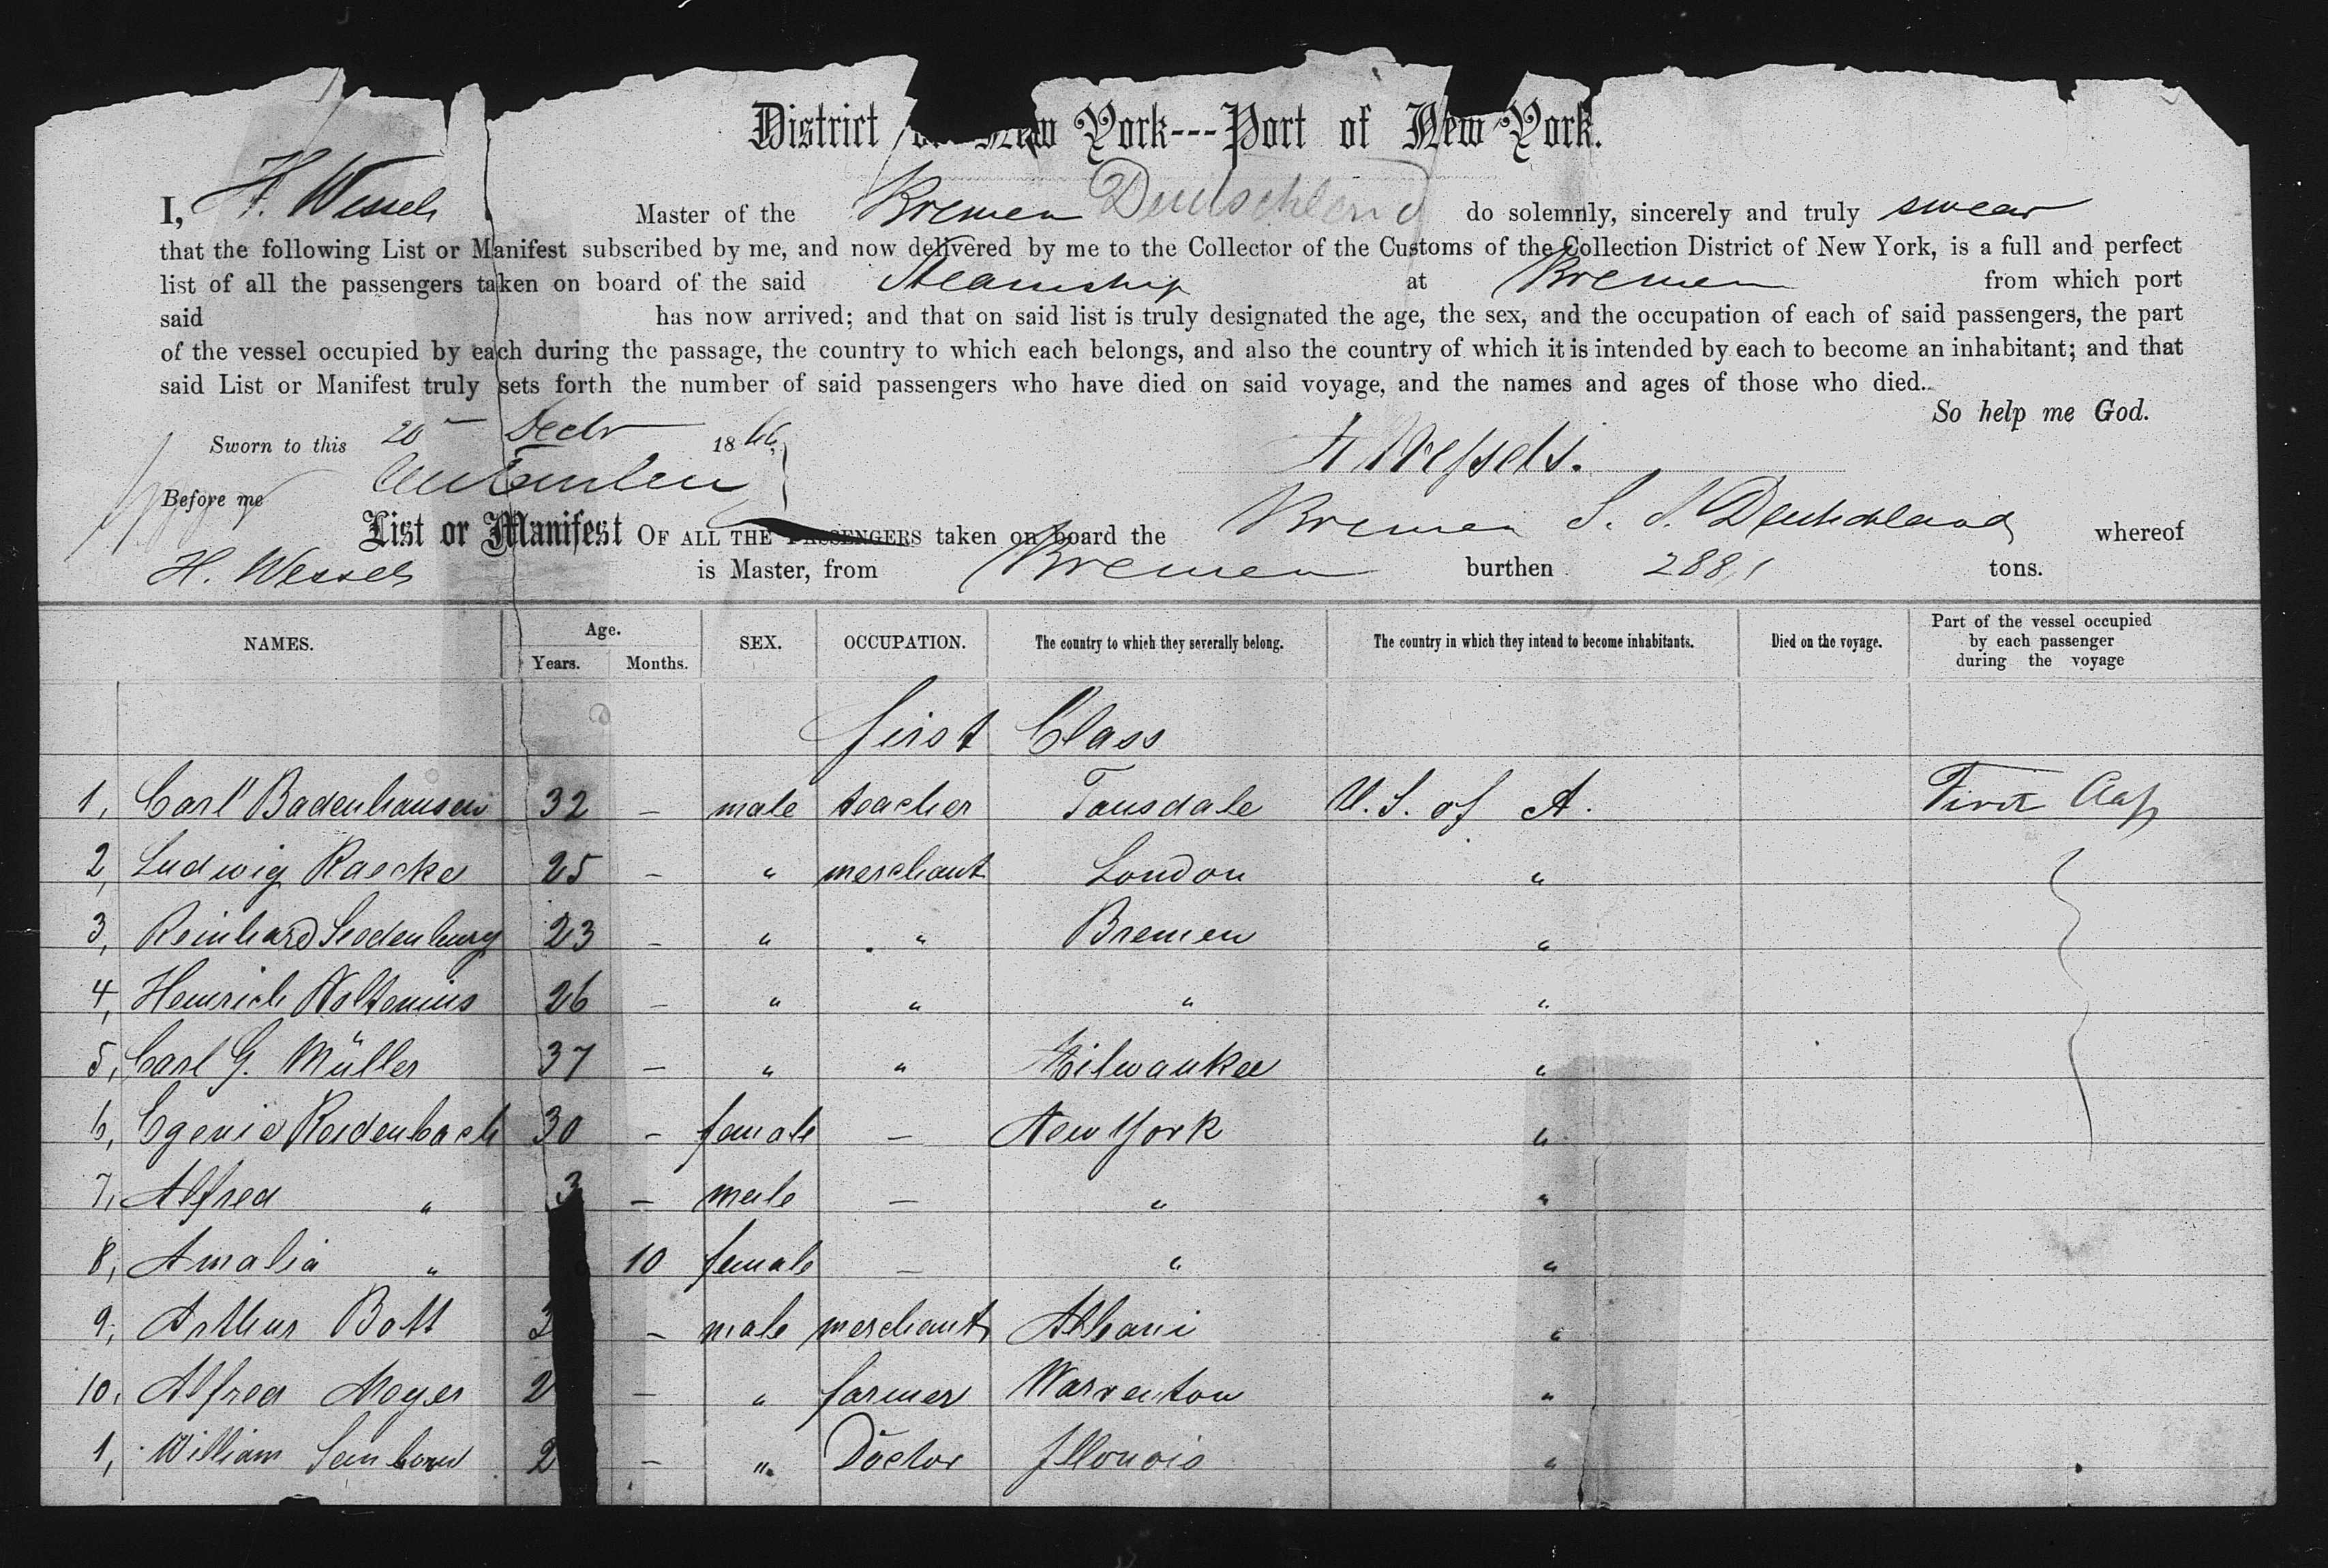 District of New York---Port of New York.
I, H. Wessels Master of the Bremen Deutschland do solemnly, sincerely and truly swear
that the following List or Manifest subscribed by me, and now delivered by me to the Collector of the Customs of the Collection District of New York, is a full and perfect
list of all the passengers taken on board of the said Steamship at Bremen from which port
said has now arrived; and that on said list is truly designated the age, the sex, and the occupation of each of said passengers, the part
of the vessel occupied by each during the passage, the country to which each belongs, and also the country of which it is intended by each to become an inhabitant; and that
said List or Manifest truly sets forth the number of said passengers who have died on said voyage, and the names and ages of those who died.
So help me God.
Sworn to this 20 Decbr 1866 H Wessels.
Before me
List or Manifest OF ALL THE PASSENGERS taken on board the Bremen S. S. Deutschland whereof
H. Wessels is Master, from Bremen burthen 2881 tons.
NAMES. Age. Years. Months. SEX. OCCUPATION. The country to which they severally belong. The country in which they intend to become inhabitants. Died on the voyage. Part of the vessel occupied by each passenger during the voyage
First Class
1, Carl Badenhausen 32 – male teacher Tansdale U. S. of A. First Class
2, Ludwig Raecke 25 – " merchant London "
3, Reinhard 23 – " " Bremen "
4, Heinrich Noltenius 26 – " " " "
5, Carl G. Müller 37 – " " Milwaukee "
6, Egenie Reidenbach 30 – female – New York "
7, Alfred " 3 – male – " "
8, Amalia " 10 female – " "
9, Arthur Bott 3 – male merchant Albani "
10, Alfred Meyer 2 – " farmer Warrenton "
1, William 2 – " Doctor Illonois "